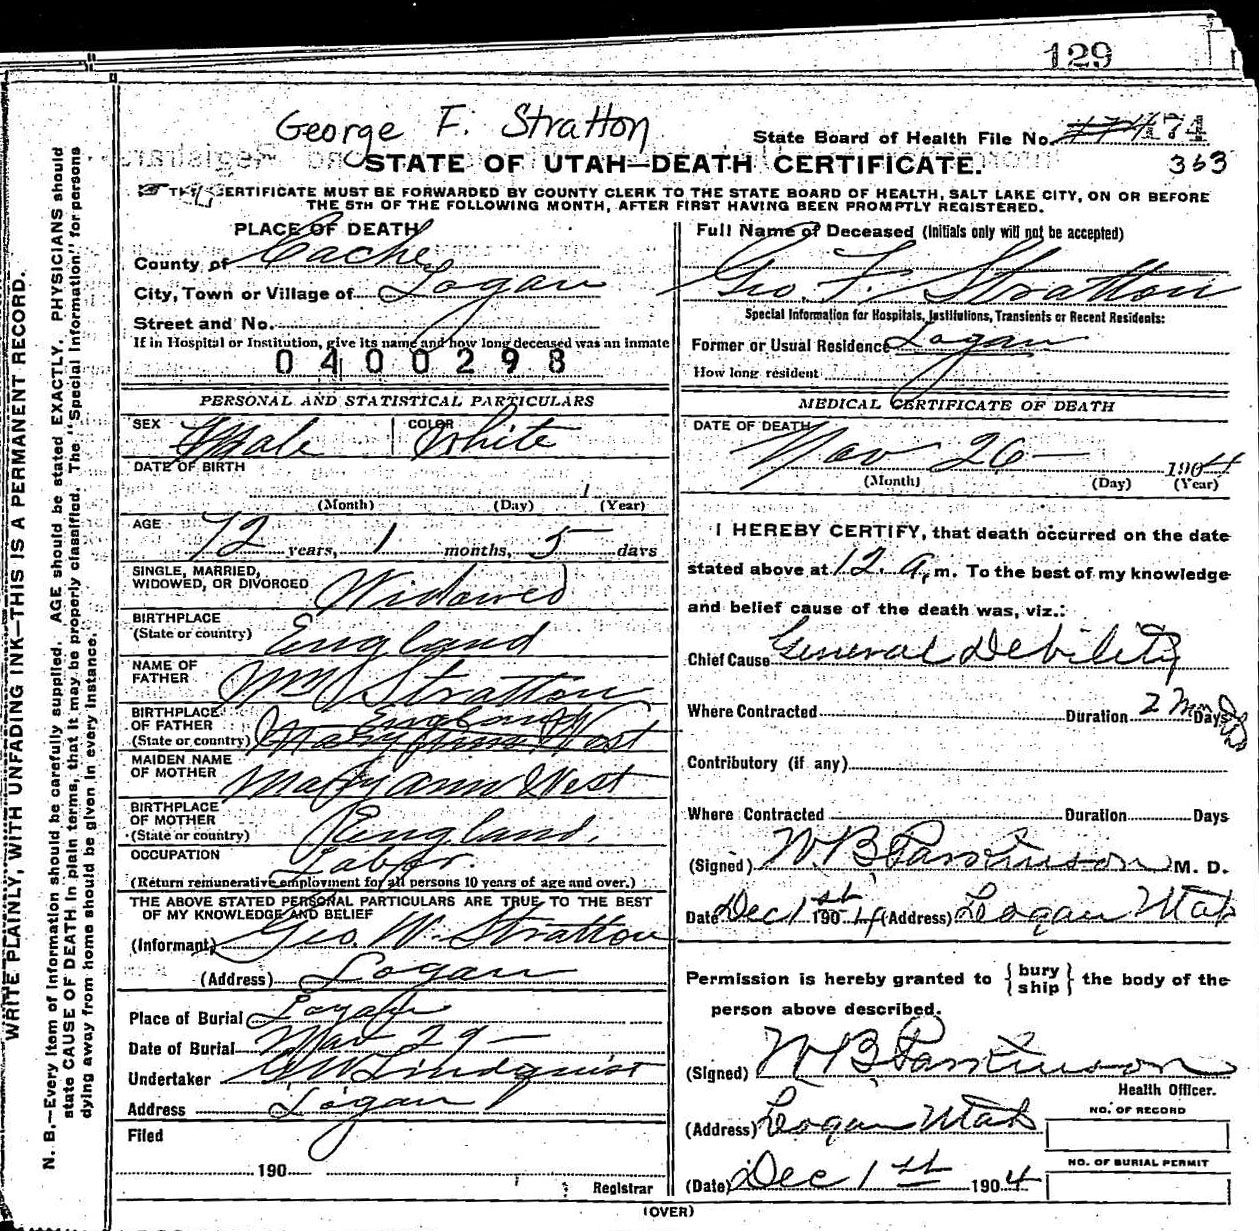 129
George F. Stratton
State Board of Health File No. 174
STATE OF UTAH—DEATH CERTIFICATE. 363
THIS CERTIFICATE MUST BE FORWARDED BY COUNTY CLERK TO THE STATE BOARD OF HEALTH, SALT LAKE CITY, ON OR BEFORE
THE 5TH OF THE FOLLOWING MONTH, AFTER FIRST HAVING BEEN PROMPTLY REGISTERED.
WRITE PLAINLY, WITH UNFADING INK—THIS IS A PERMANENT RECORD.
N. B.—Every item of information should be carefully supplied. AGE should be stated EXACTLY. PHYSICIANS should
state CAUSE OF DEATH in plain terms, that it may be properly classified. The "Special Information" for persons
dying away from home should be given in every instance.
PLACE OF DEATH
County of Cache
City, Town or Village of Logan
Street and No.
If in Hospital or Institution, give its name and how long deceased was an inmate
0400298
PERSONAL AND STATISTICAL PARTICULARS
SEX Male COLOR White
DATE OF BIRTH
1
(Month) (Day) (Year)
AGE 72 years, 1 months, 5 days
SINGLE, MARRIED,
WIDOWED, OR DIVORCED Widowed
BIRTHPLACE
(State or country) England
NAME OF
FATHER Wm Stratton
BIRTHPLACE
OF FATHER England
(State or country) Mary Ann West
MAIDEN NAME
OF MOTHER Mary Ann West
BIRTHPLACE
OF MOTHER
(State or country) England.
OCCUPATION Labor.
(Return remunerative employment for all persons 10 years of age and over.)
THE ABOVE STATED PERSONAL PARTICULARS ARE TRUE TO THE BEST
OF MY KNOWLEDGE AND BELIEF
(Informant) Geo. W. Stratton
(Address) Logan
Place of Burial Logan
Date of Burial Nov 29—
Undertaker Lindquist
Address Logan
Filed
190
Registrar
Full Name of Deceased (Initials only will not be accepted)
Geo. F. Stratton
Special Information for Hospitals, Institutions, Transients or Recent Residents:
Former or Usual Residence Logan
How long resident
MEDICAL CERTIFICATE OF DEATH
DATE OF DEATH
Nov 26— 1904
(Month) (Day) (Year)
I HEREBY CERTIFY, that death occurred on the date
stated above at 12 a, m. To the best of my knowledge
and belief cause of the death was, viz.:
Chief Cause General Debility
Where Contracted Duration 2 Days
Contributory (if any)
Where Contracted Duration Days
(Signed) W. B. Parkinson M. D.
Date Dec 1st 1904 (Address) Logan Utah
Permission is hereby granted to { bury
ship } the body of the
person above described.
(Signed) W B Parkinson
Health Officer.
(Address) Logan Utah
NO. OF RECORD
NO. OF BURIAL PERMIT
(Date) Dec 1st 1904
(OVER)